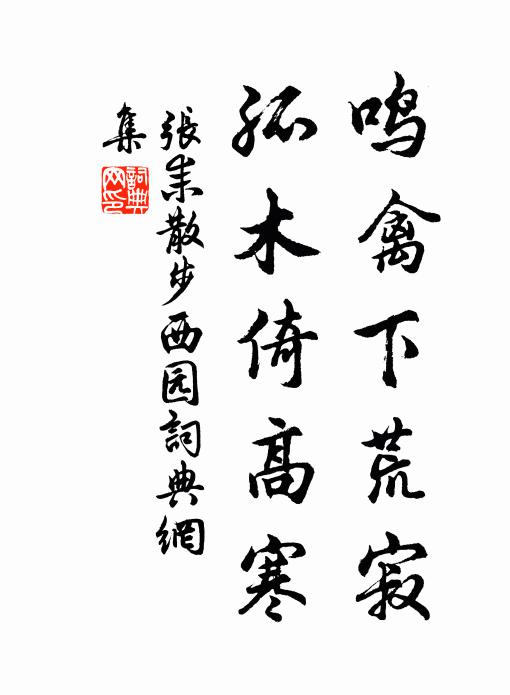 鸣禽下荒寂
孤木倚高寒
張耒散步西园詞典網
集
詞典网印